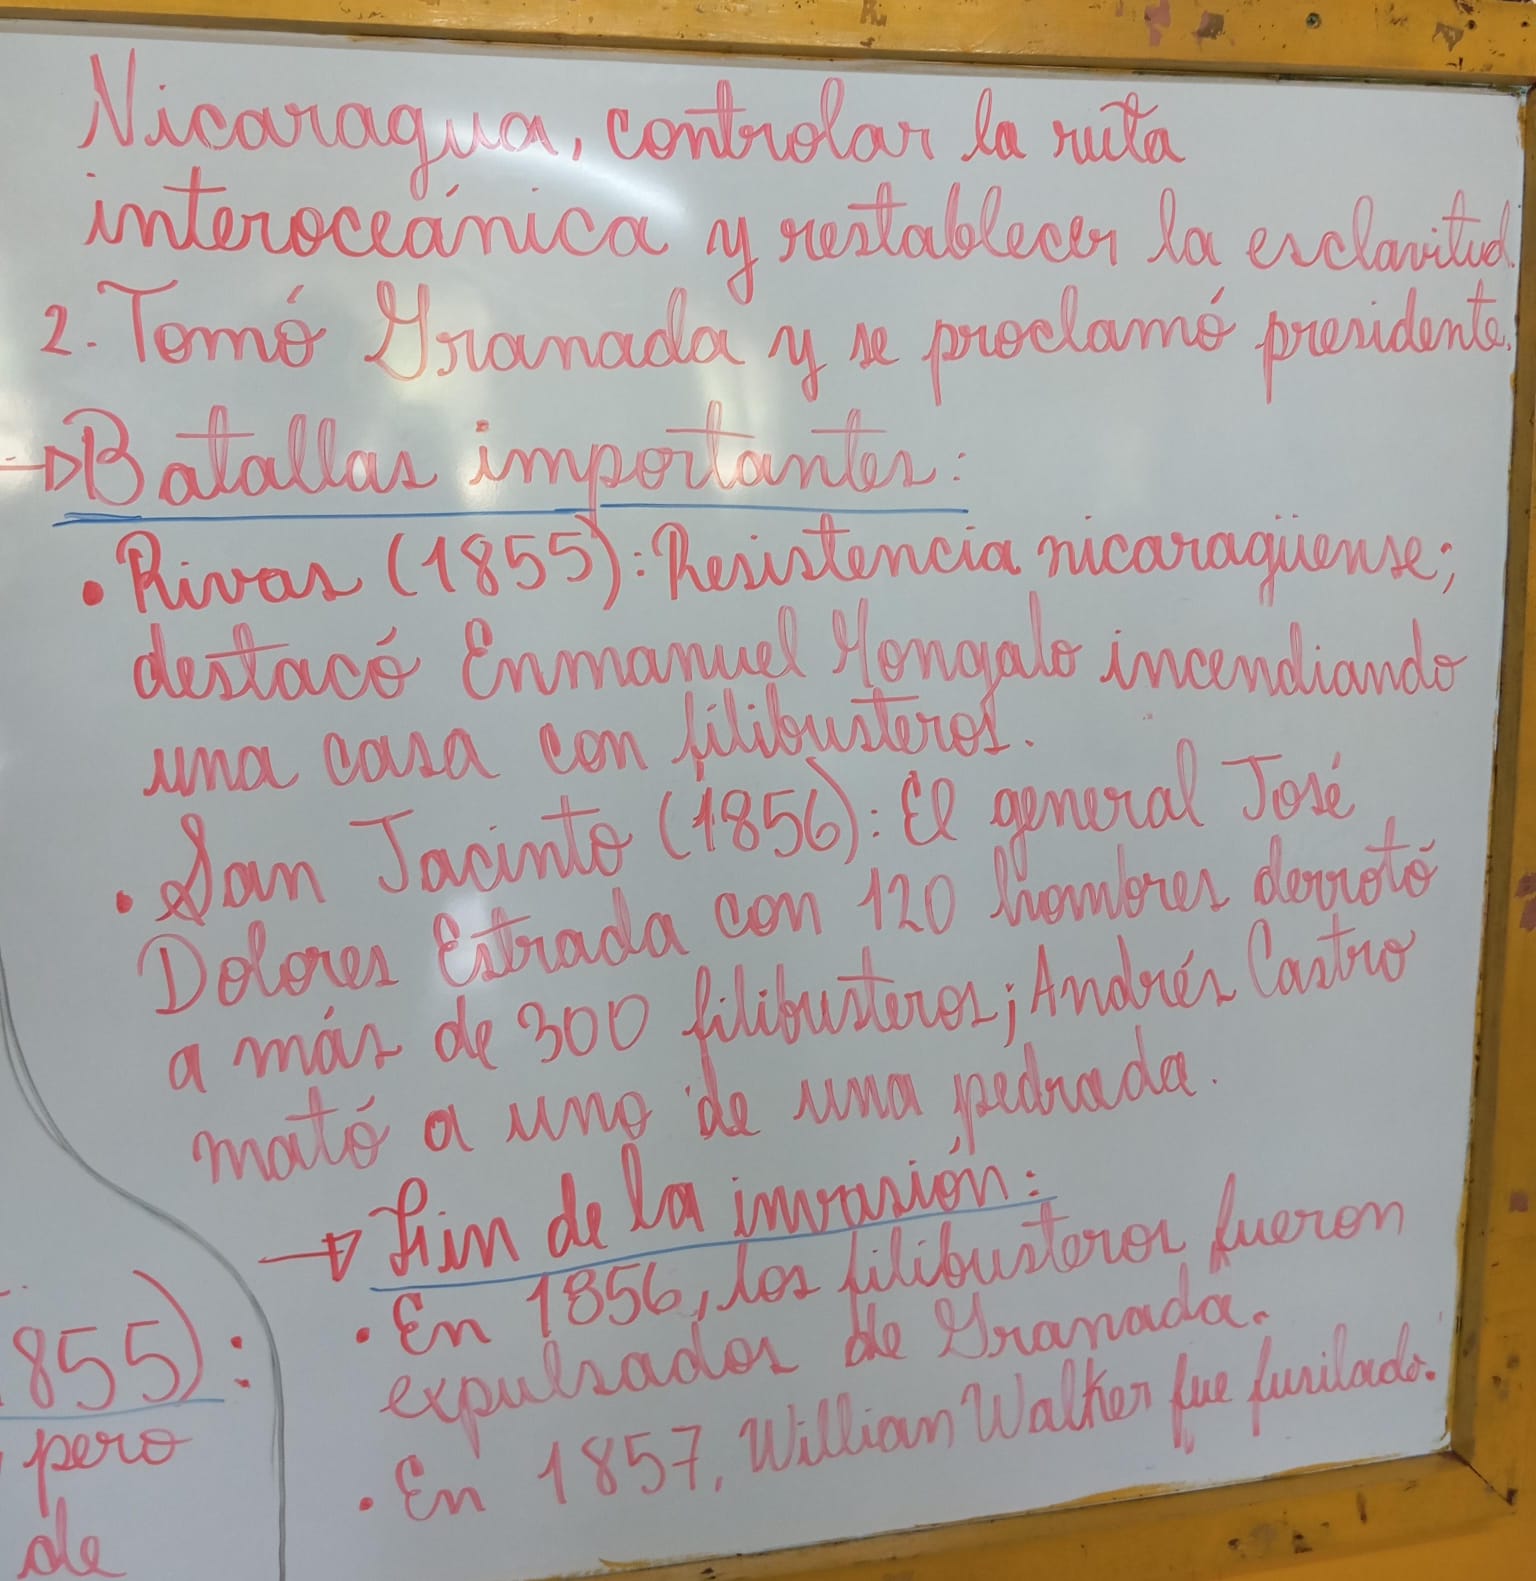 Nicaragua, controlar la ruta
interoceánica y restablecer la esclavitud.
2. Tomó Granada y se proclamó presidente.
→Batallas importantes:
• Rivas (1855): Resistencia nicaragüense;
destacó Enmanuel Mongalo incendiando
una casa con filibusteros.
• San Jacinto (1856): El general José
Dolores Estrada con 120 hombres derrotó
a más de 300 filibusteros; Andrés Castro
mató a uno de una pedrada.
→ Fin de la invasión:
• En 1856, los filibusteros fueron
expulsados de Granada.
• En 1857, Willian Walker fue fusilado.
855):
pero
de